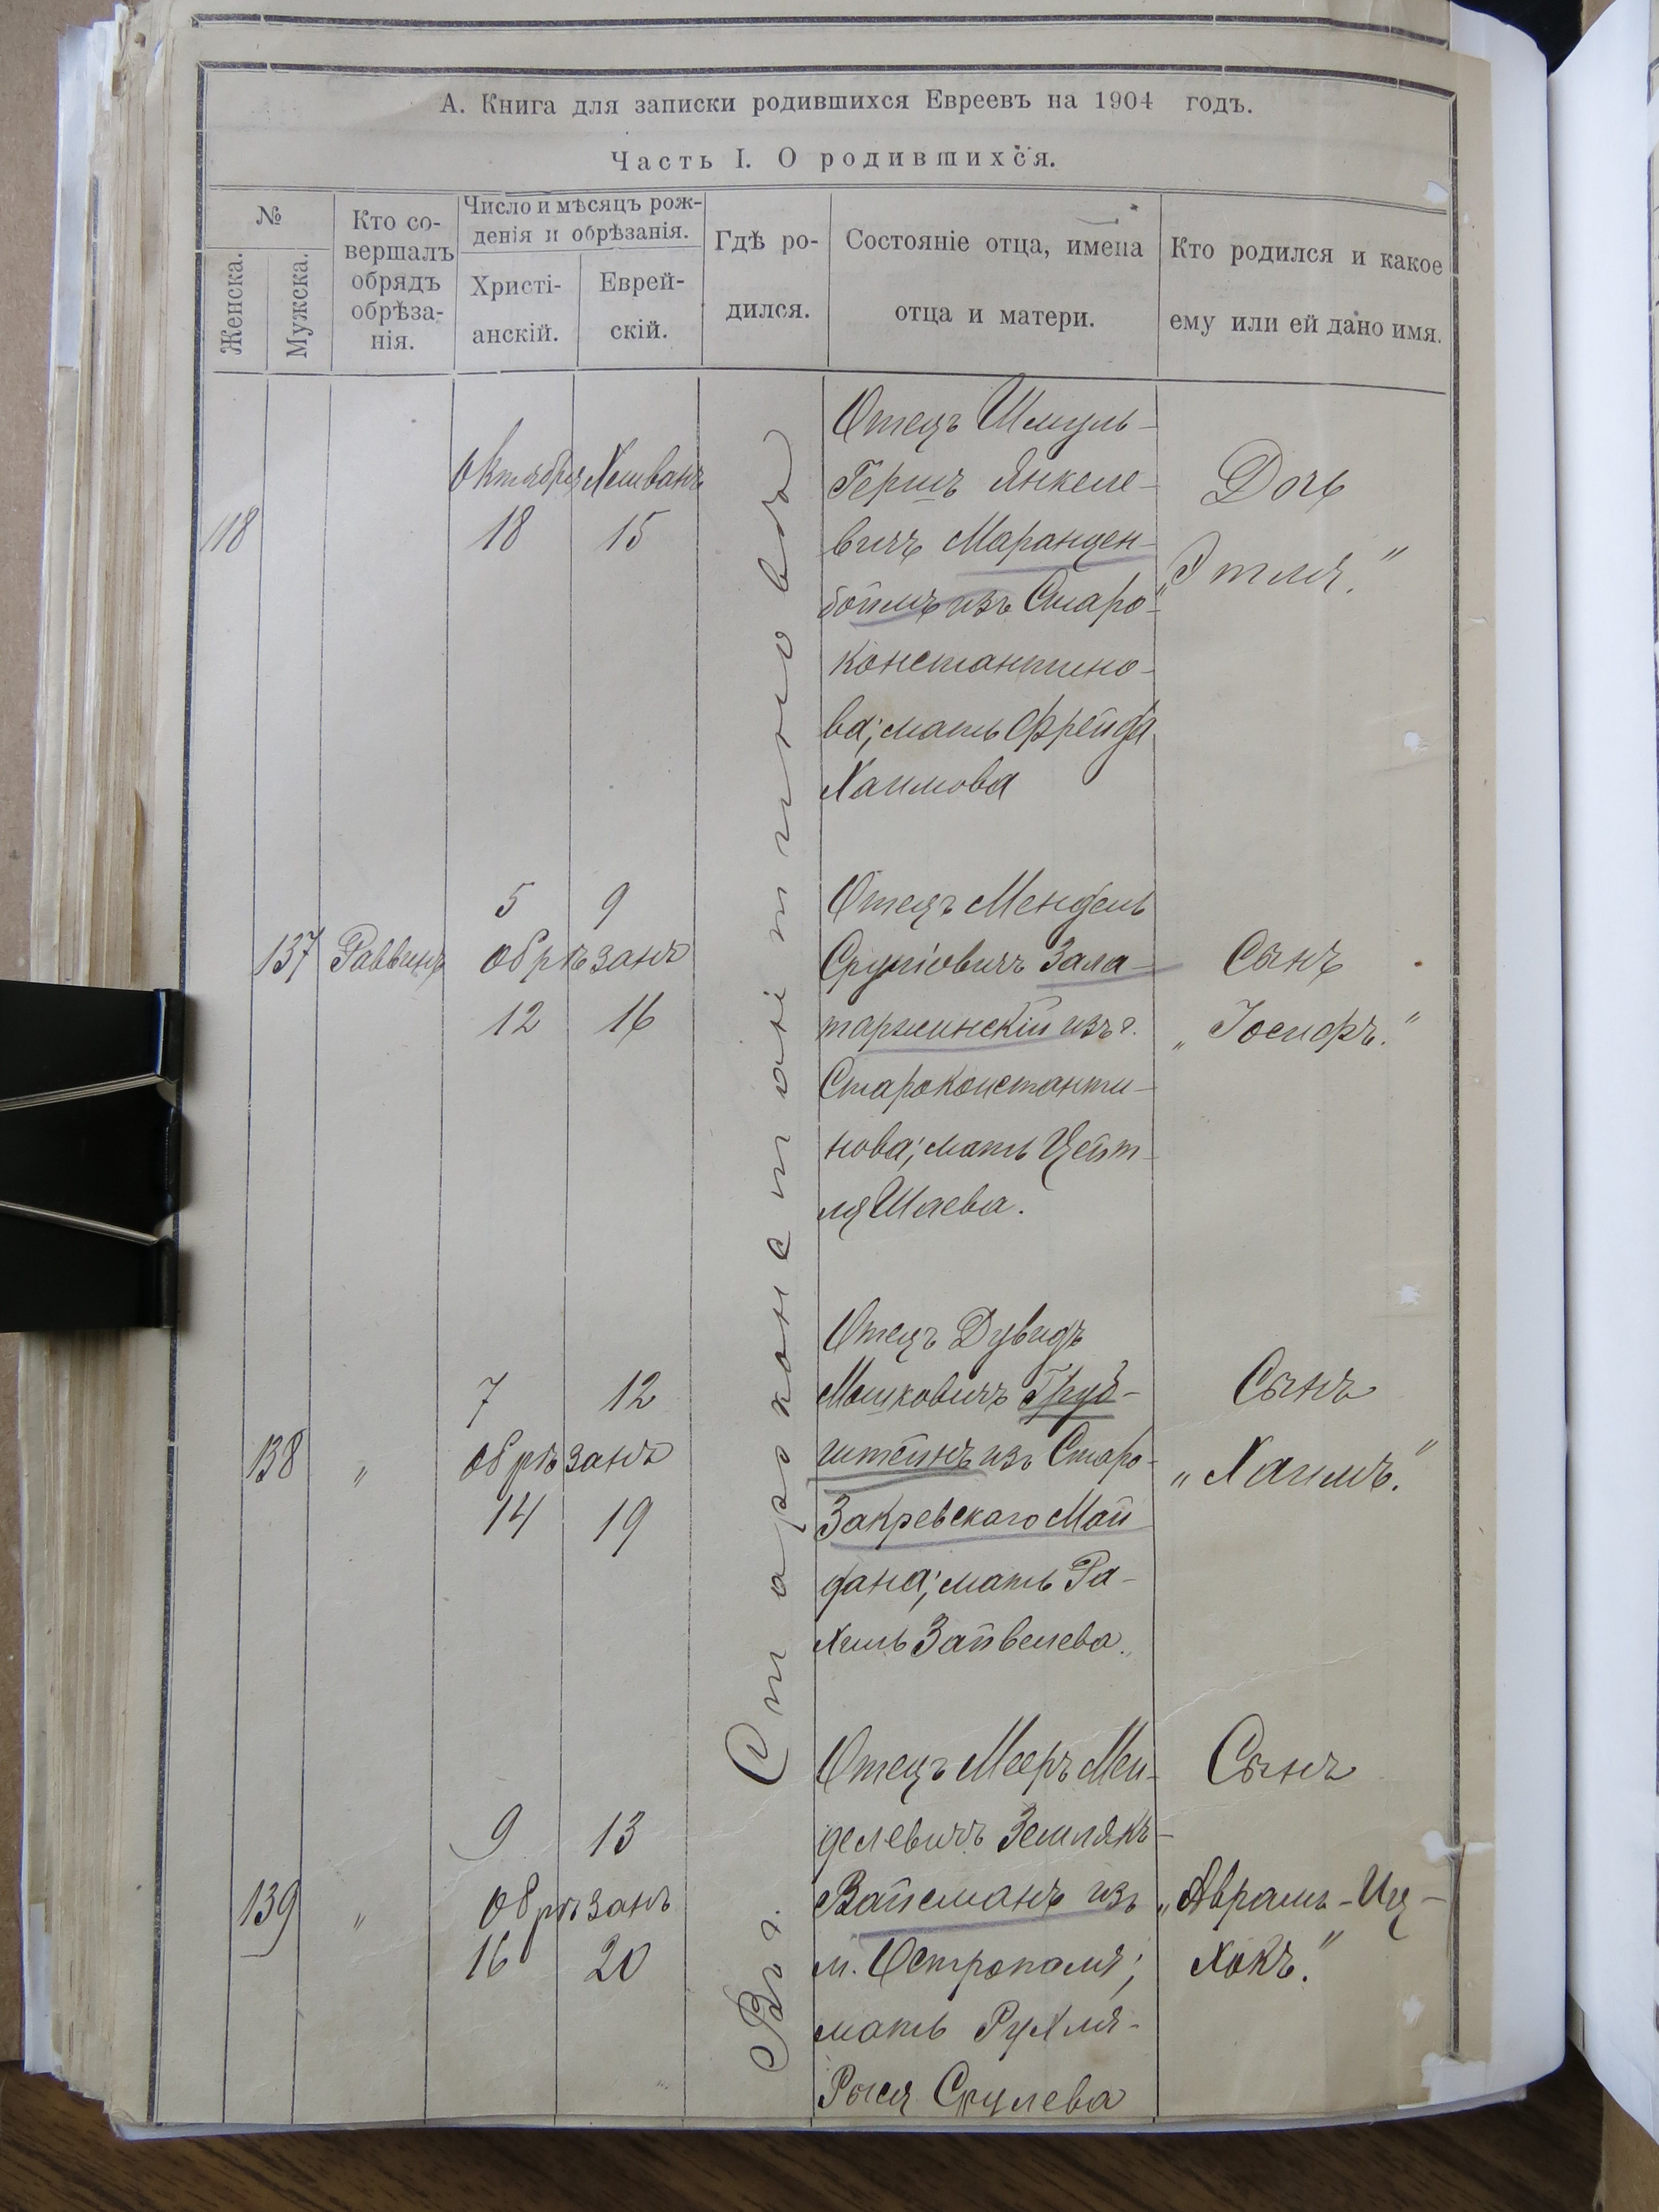 А. Книга для записки родившихся Евреевъ на 1904 годъ.
Часть I. О родившихся.
№
Женска.
Мужска.
Кто со-
вершалъ
обрядъ
обрѣза-
нія.
Число и мѣсяцъ рож-
денія и обрѣзанія.
Христі-
анскій.
Еврей-
скій.
Гдѣ ро-
дился.
Состояніе отца, имена
отца и матери.
Кто родился и какое
ему или ей дано имя.
Въ г. Староконстантиновѣ
118
Октября Хешванъ
18 15
Отецъ Шмуль-
Гершъ Янкеле-
вичъ Маранцен-
боймъ изъ Старо-
константино-
ва; мать Фрейда
Хаимова
Дочь
"Этля."
137 Раввинъ
5 9
обрѣзанъ
12 16
Отецъ Мендель
Срулiовичъ Зала-
таржинскій изъ г.
Староконстанти-
нова; мать Цейт-
ля Шаева.
Сынъ
„Іосифъ."
138 "
7 12
обрѣзанъ
14 19
Отецъ Дувидъ
Мошковичъ Груб-
штейнъ изъ Старо-
Закревскаго Май
дана; мать Ра-
хиль Зайвелева.
Сынъ
„Хаимъ."
139 "
9 13
обрѣзанъ
16 20
Отецъ Мееръ Мен-
делевичъ Землякъ-
Вайсманъ изъ
м. Острополя;
мать Рухля-
Рыся Срулева
Сынъ
„Аврамъ-Иц-
хокъ."